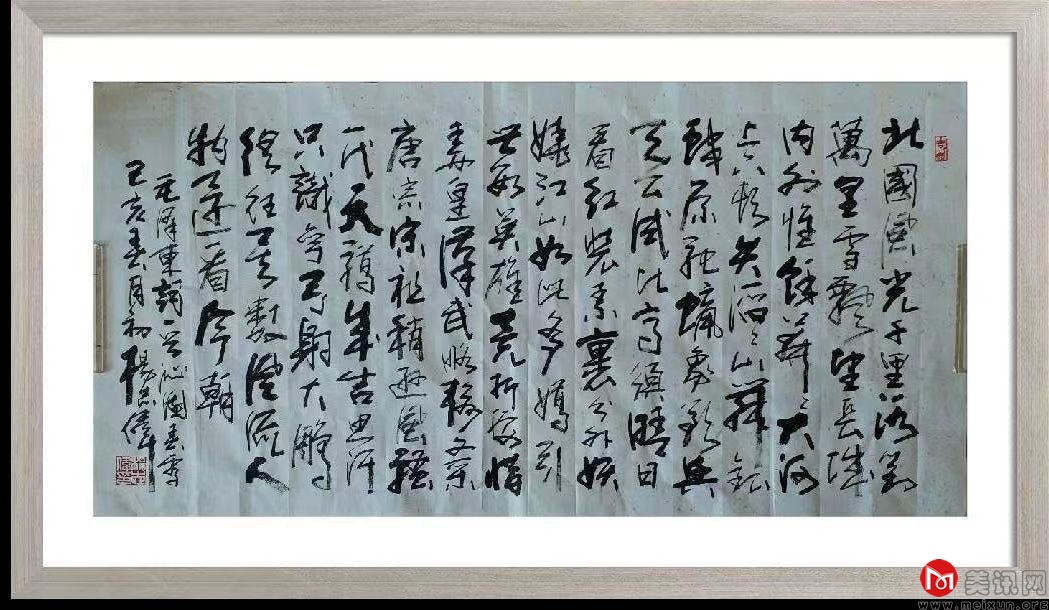 北國風光千里冰封
萬里雪飄望長城
内外惟餘莽〻大河
上下頓失滔〻山舞銀
蛇原馳蠟象欲與
天公試比高須晴日
看紅裝素裹分外妖
嬈江山如此多嬌引
無數英雄競折腰惜
秦皇漢武略輸文采
唐宗宋祖稍遜風騷
一代天驕成吉思汗
只識彎弓射大鵰
俱往矣數風流人
物還看今朝
毛澤東詞一首沁園春雪
己亥春月初楊志偉
美讯网
www.meixun.org